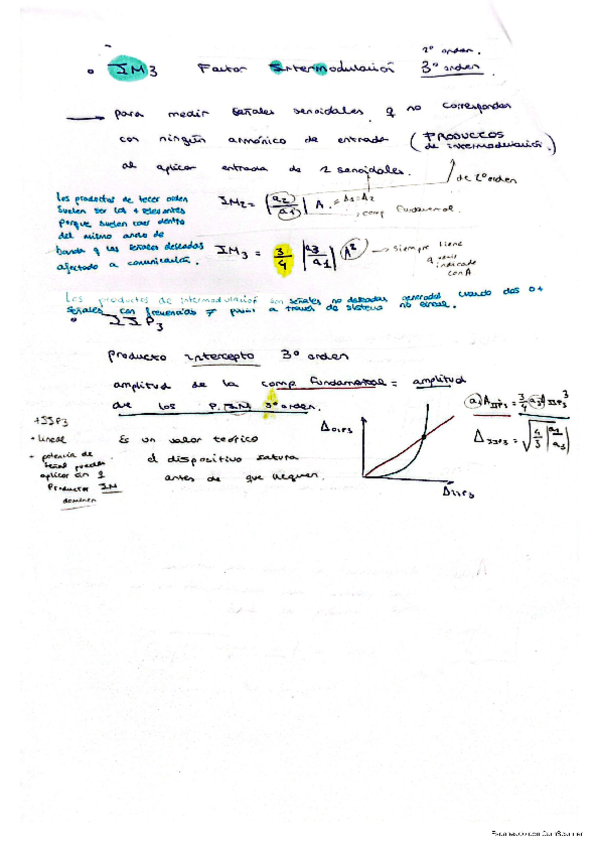 2º orden.
• IM3 Factor Intermodulación 3º orden
→ para medir señales senoidales q no corresponden
con ningún armónico de entrada (PRODUCTOS de intermodulación.)
al aplicar entrada de 2 senoidales.
de 2º orden
Los productos de tecer orden
suelen ser los + relevantes
porque suelen caer dentro
del mismo ancho de
banda q las señales deseadas
afectado a comunicación.
IM2 = |a2/a1| A. A1=A2
comp fundamental.
IM3 = 3/4 |a3/a1| A² → siempre tiene
q venir
indicado
con A
Los productos de intermodulación son señales no deseadas generadas cuando dos o +
señales con frecuencias ≠ pasan a través de sistema no lineal.
• IIP3
producto intercepto 3º orden
amplitud de la comp fundamental = amplitud
de los P. IM 3º orden.
a1 AIIP3 = 3/4 a3 AIIP3³
AIIP3 = √(4/3 |a1/a3|)
+IIP3
+ lineal
+ potencia de
señal puedes
aplicar sin q
Productos IM
dominen
Es un valor teórico
el dispositivo satura
antes de que lleguen.
AOIP3
AIIP3
Escaneado con CamScanner